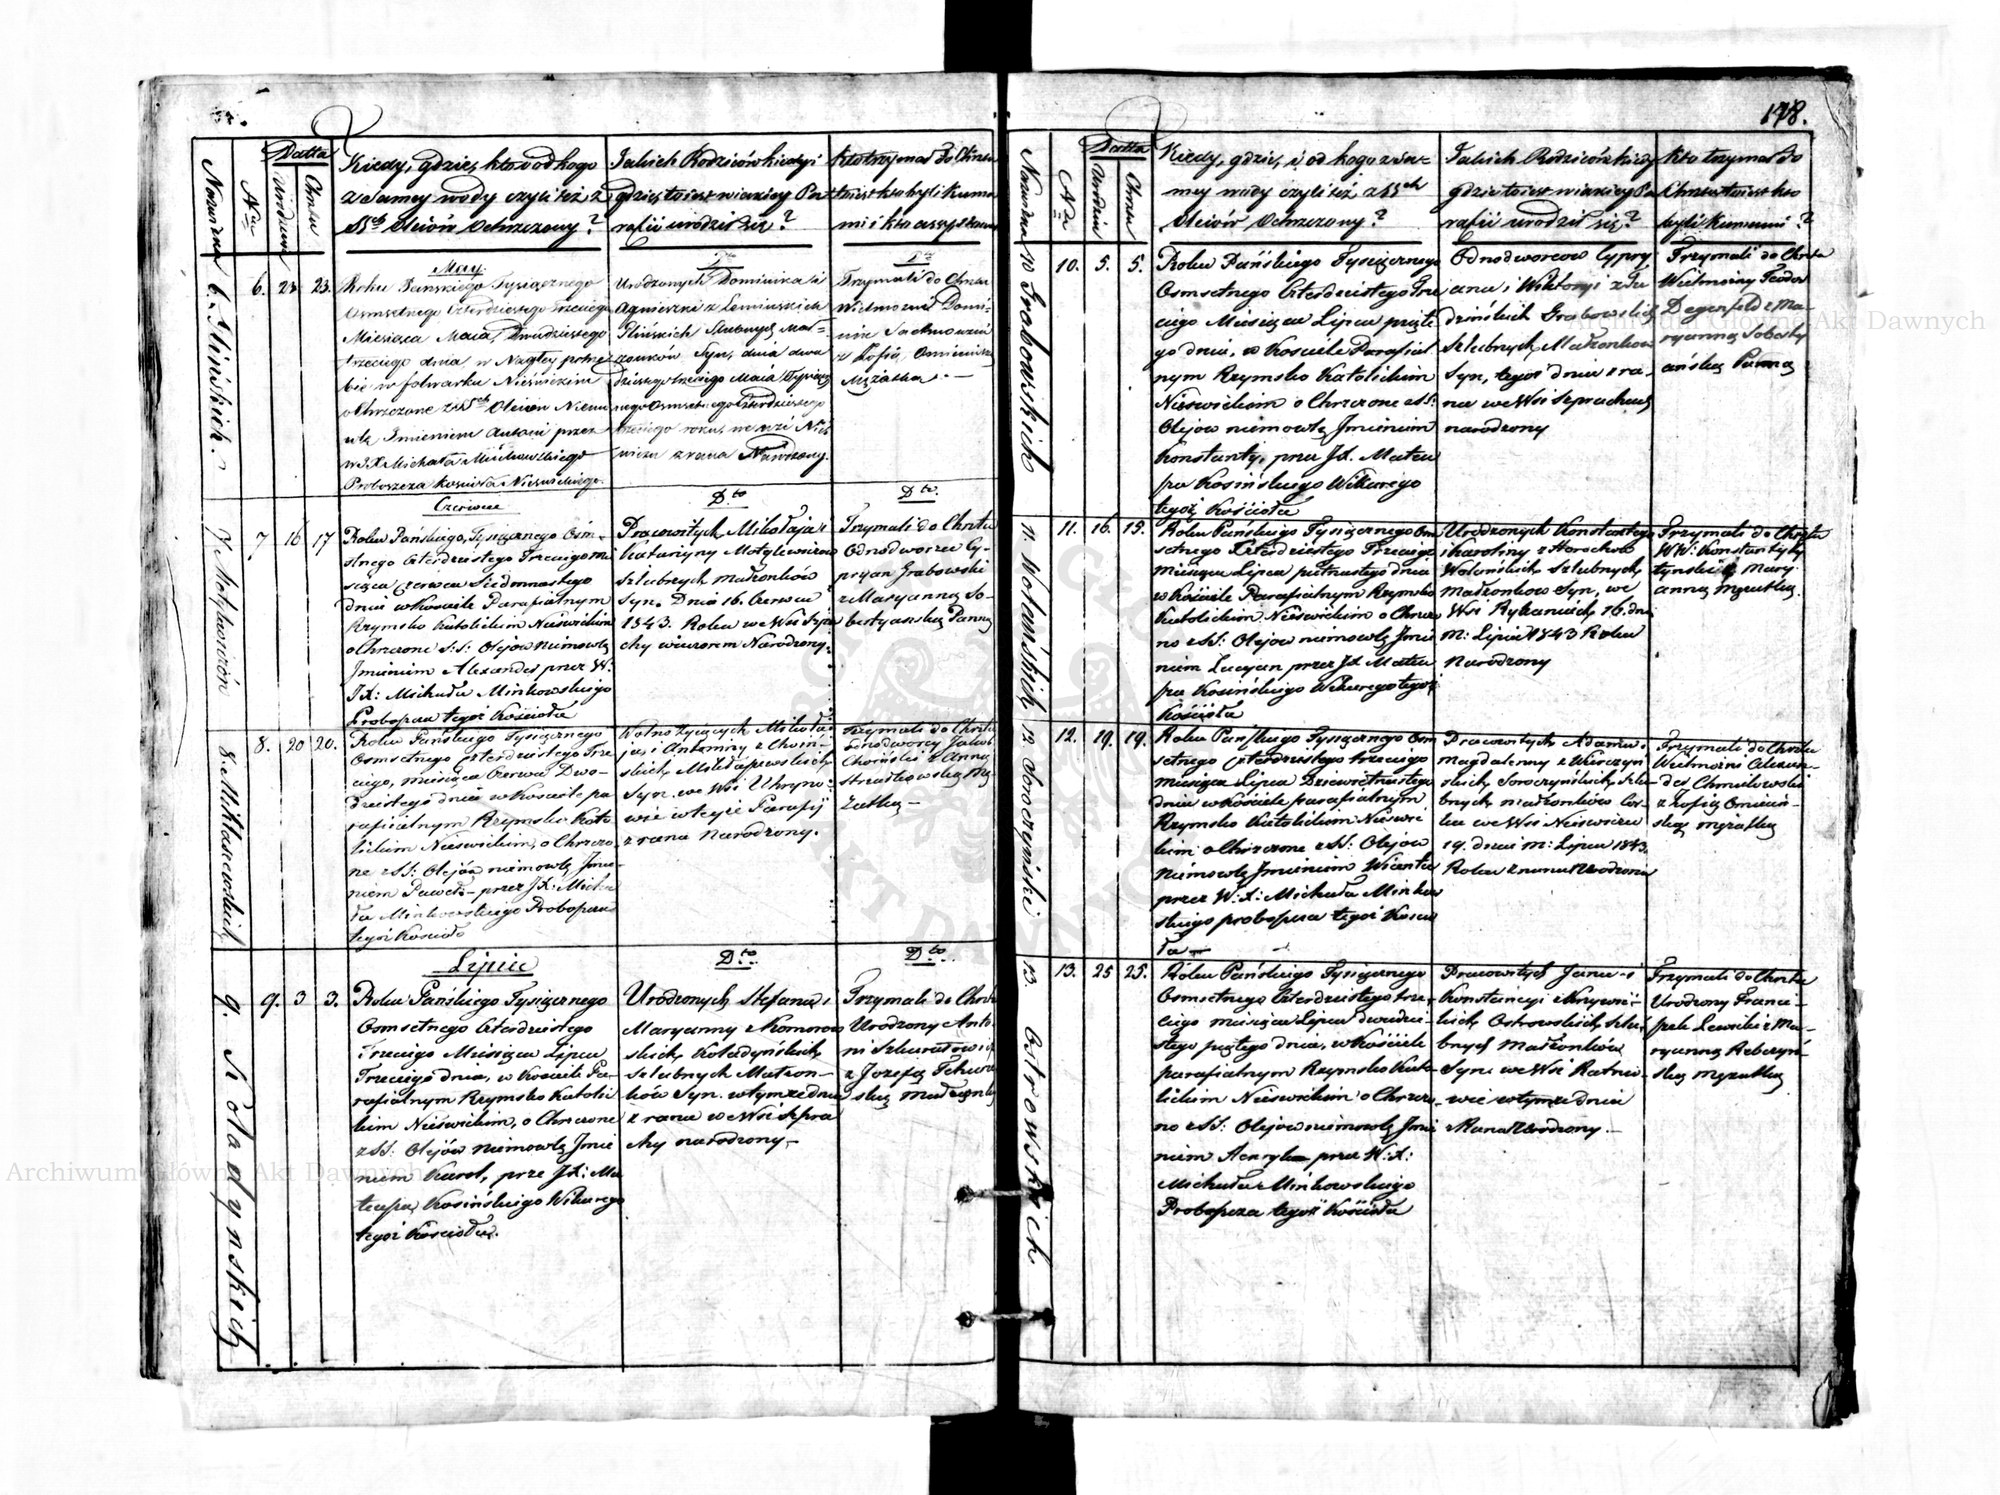 178.
Nazwiska
Nra
Datta
Urodzenia
Chrztu
Kiedy, gdzie, kto i od kogo
z samey wody czyli też z
SSch Oleiów Ochrzczony?
Jakich Rodziców kiedy i
gdzie to iest w iakiey Pa-
rafii urodził się?
Kto trzymał do Chrztu
to iest kto byli kuma-
mi i kto assystował
6. Glińskich.
6.
23
23.
May.
Roku Pańskiego Tysiącznego
Osmsetnego Czterdziestego Trzeciego
Miesiąca Maia, Dwudziestego
trzeciego dnia w Nagłey potrze
bie w folwarku Nieświczkim
ochrzczone z SSch Oleiow Niemo
wle Imieniem Antoni przez
W J X Michała Minkowskiego
Proboszcza kościoła Nieświckiego.
Urodzonych Dominika i
Agnieszki z
Glińskich Slubnych Mał-
żonków Syn, dnia dwu
dziestego trzeciego Maia Tysiącz
nego Osmsetnego Czterdziestego
trzeciego roku, we wsi Nieś
wiczu z rana Narodzony.
Trzymali do Chrztu
Wielmożni Domi-
nik Jachmowicz
z Zofią
Mężatką.
7. Motylewiczów
7
16
17
Czerwiec
Roku Pańskiego, Tysiącznego Osm-
setnego Czterdziestego Trzeciego mie
siąca Czerwca Siedmnastego
dnia w Kościele Parafialnym
Rzymsko Katolickim Nieświckim
o Chrzczone S:S: Olejow Niemowlę
Imieniem Alexander przez W.
JX: Michała Minkowskiego
Proboszcza tegoż Kościoła
Dto
Pracowitych Mikołaja i
Katarzyny Motylewiczow
szlubnych małżonków
Syn. Dnia 16. Czerwca
1843. Roku we Wsi Szpra
chy wieczorem Narodzony.
Dto.
Trzymali do Chrztu
Odnodworzec Cy-
pryan Grabowski
z Maryanną So-
bestyanską Panną
8. Miklaszewskich
8.
20
20.
Roku Pańskiego Tysiącznego
Osmsetnego Czterdziestego Trze
ciego, miesiąca Czerwca Dwu-
dziestego dnia w Kościele pa
rafialnym Rzymsko Kato
lickim Nieświckim, o Chrzczo
ne z SS: Olejów niemowlę Imie-
niem Paweł przez JX: Micha
ła Minkowskiego Proboszcza
tegoż Kościoła
Wolno żyjących Mikoła
ja, i Antoniny z Choiń-
skich Miklaszewskich
Syn. we Wsi Uhryno-
wie w teyże Parafij
z rana Narodzony.
Trzymali do Chrztu
Odnodworcy Jakob
Choiński z Anną
Straszkowską Mę
żatką
9. Koładynskich
9.
3
3.
Lipiec
Roku Pańskiego Tysiącznego
Osmsetnego Czterdziestego
Trzeciego Miesiąca Lipca
Trzeciego dnia, w Kościele Pa-
rafialnym Rzymsko Katolic
kim Nieświckim, o Chrzczone
z SS: Olejów niemowlę Imie
niem Karol, prze JX: Ma
teusza Kosińskiego Wikarego
tegoż Kościoła.
Dto.
Urodzonych Stefana i
Maryanny z Komorow
skich, Koladyńskich
szlubnych Małżon-
ków Syn. w tymze dniu
z rana we Wsi Szpra
chy narodzony.
Dto.
Trzymali do Chrztu
Urodzony Anto-
ni Szkuratowicz
z Jozefą
Nazwiska
Nra
Datta
Urodzin
Chrztu
Kiedy, gdzie, i od kogo z sa-
mey wody czyli też z SSch
Oleiów Ochrzczony?
Jakich Rodziców kiedy
gdzie to iest w iakiey Pa
rafii urodził się?
Kto trzymał do
Chrztu to iest kto
byli kumami?
10 Grabowskich
10.
5.
5.
Roku Pańskiego Tysiącznego
Osmsetnego Czterdziestego Trze
ciego Miesiąca Lipca piąte
go dnia, w Kościele Parafial
nym Rzymsko Katolickim
Nieświckim o Chrzczone z SS:
Olejow niemowlę Imieniem
Konstanty, przez JX. Mateu
sza Kosińskiego Wikarego
tegoż Kościoła
Odnodworcow Cypry
ana i Wiktoryi z
Grabowskich
szlubnych Małżonkow
Syn, tegoż dnia z ra-
na we Wsi Szprachach
narodzony
Trzymali do Chrztu
Wielmożny Teodor
Degenfeld z Ma-
ryanną Sobesty
ańską Panną
11. Wolańskich
11.
16.
15.
Roku Pańskiego Tysiącznego Osm
setnego Czterdziestego Trzeciego
miesiąca Lipca piętnastego dnia
w Kościele Parafialnym Rzymsko
Katolickim Nieświckim o Chrzczo
no z SS: Olejow niemowlę Imie
niem Lucyan przez JX Mateu
sza Kosińskiego Wikarego tegoż
Kościoła
Urodzonych Konstantego
i Karoliny z
Wolańskich Szlubnych
Małżonkow Syn, we
Wsi Rykaniach, 16. dnia
M: Lipca 1843 Roku
Narodzony
Trzymali do Chrztu
WW: Konstanty
z Mary
anną Mężatką.
12 Soroczyński
12.
19.
19.
Roku Pańskiego Tysiącznego Osm
setnego Czterdziestego trzeciego
miesiąca Lipca Dziewiętnastego
dnia w Kościele parafialnym
Rzymsko Katolickim Nieświc
kim o Chrzczone z SS: Olejow
Niemowlę Imieniem Wicenta
przez W: X: Michała Minkow
skiego proboszcza tegoż Kościo
ła
Pracowitych Adama i
Magdaleny z
skich Soroczyńskich szlu-
bnych małżonków Cór-
ka we Wsi Nieświczu
19. dnia m: Lipca 1843
Roku z rana Urodzona
Trzymali do Chrztu
Wielmożni Alexan-
der Chmielowski
z Zofią
mężatką
13 Ostrowskich
13.
25
25.
Roku Pańskiego Tysiącznego
Osmsetnego Czterdziestego trze-
ciego miesiąca Lipca dwudzie-
stego piątego dnia, w Kościele
parafialnym Rzymsko Kato-
lickim Nieświckim o Chrzczo
no z SS: Olejow niemowlę Imie
niem Henryk przez W: X:
Michała Minkowskiego
Proboszcza tegoż Kościoła
Pracowitych Jana i
Konstancyi z Krzywic-
kich, Ostrowskich, szlu-
bnych Małżonków
Syn. we Wsi Ratnio-
wie w tymże dniu
z Rana Urodzony.
Trzymali do Chrztu
Urodzony Franci-
szek Lewicki z Ma-
ryanną
mężatką
Archiwum Główne Akt Dawnych
Archiwum Główne Akt Dawnych